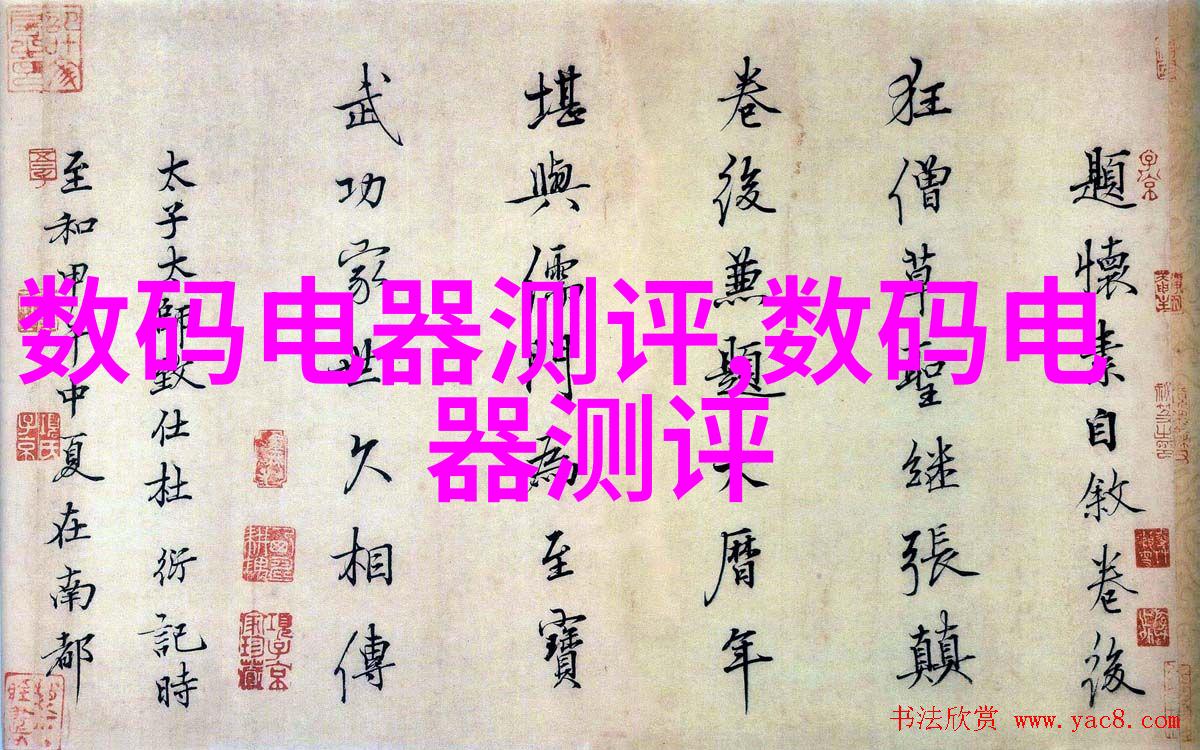 題懷素自敘卷後
狂僧草聖継張顛
卷後兼題大曆年
堪與儒門為至寶
武功家世久相傳
太子太師致仕杜 衍記時
至和甲午中夏在南都
数码电器测评,数码电
器测评
书法欣赏 www.yac8.com